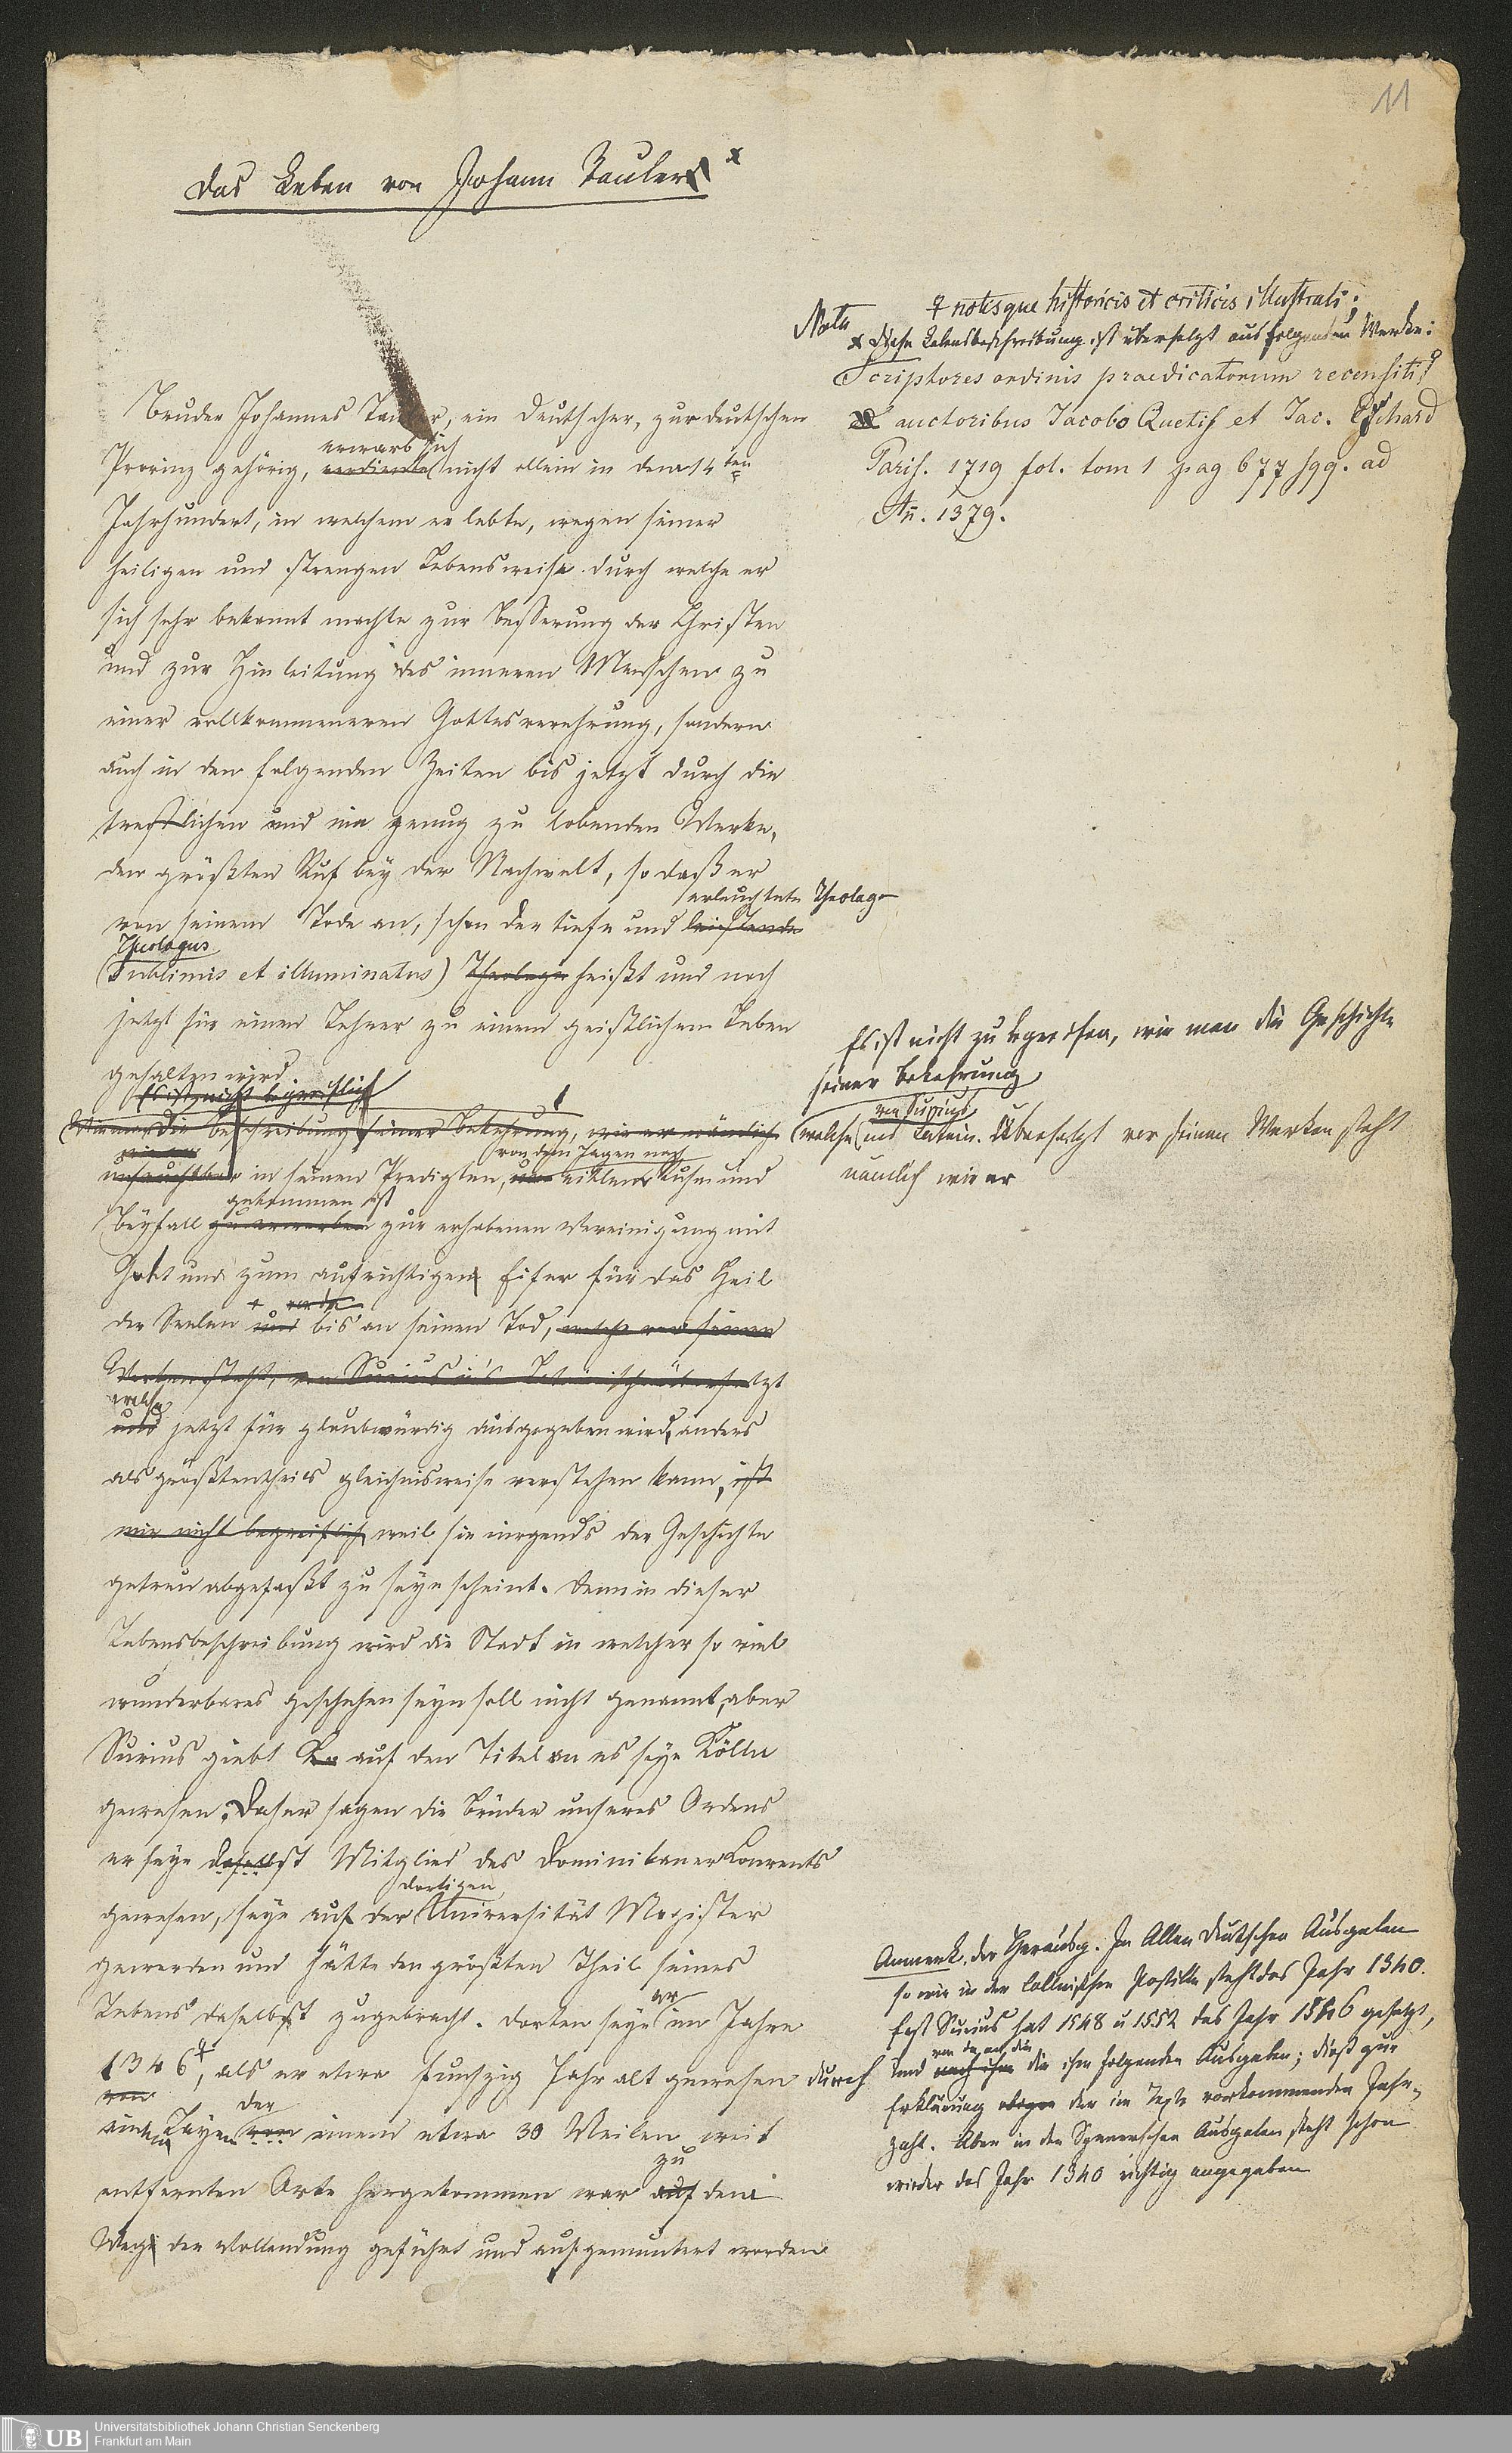 11
Das Leben von Johann Taulers x
Bruder Johannes Tauler, ein Deutscher, zur deutschen
erwarb sich
Provinz gehörig, verdiente nicht allein in dem 14ten
Jahrhundert, in welchem er lebte, wegen seiner
heiligen und strengen Lebensweise durch welche er
sich sehr bekannt machte zur Besserung der Christen
und zur Hinleitung des inneren Menschen zu
einer vollkommeneren Gottesverehrung, sondern
auch in den folgenden Zeiten bis jetzt durch die
trefflichen und nie genug zu lobenden Werke,
den größten Ruf bey der Nachwelt, so daß er
erleuchtete Theologe
von seinem Tode an, schon der tiefe und leuchtende
Theologus
(Sublimis et illuminatus) Theologe heißt und noch
jetzt für einen Lehrer zu einem geistlichen Leben
gehalten wird.
Es ist nicht begreiflich
die Beschreibung seiner Bekehrung, wie er nämlich
von dem Jagen nach
in seinen Predigten, eitlem Ruhm und
gekommen ist
Beyfall zu erwerben zur erhabenen Vereinigung mit
Gott und zum aufrichtigen Eifer für das Heil
der Seelen und bis an seinen Tod, welche vor seinen
Werken steht, von Surius in's Lateinische übersetzt
welche
und jetzt für glaubwürdig ausgegeben wird, anders
als größtentheils gleichnisweise verstehen kann, ist
mir nicht begreiflich weil sie nirgends der Geschichte
getreu abgefaßt zu seyn scheint. Denn in dieser
Lebensbeschreibung wird die Stadt in welcher so viel
wunderbares geschehen seyn soll nicht genannt, aber
Surius giebt auf dem Titel an es seye Kölln
gewesen. Daher sagen die Brüder unseres Ordens
er seye daselbst Mitglied des Dominikaner Convents
dortigen
gewesen, seye auf der Universität Magister
geworden und hätte den größten Theil seines
Lebens daselbst zugebracht. Dorten seye er im Jahre
1346, als er etwa funfzig Jahr alt gewesen durch
von der
einen Layen von einem etwa 30 Meilen weit
zu
entfernten Orte hergekommen war auf dem
Wege der Vollendung geführt und aufgemuntert worden
Nota
notisque historicis et criticis illustrati;
x Diese Lebensbeschreibung ist übersetzt aus folgendem Werke:
Scriptores ordinis praedicatorum recensiti
auctoribus Jacobo Quetif et Jac. Echard
Paris. 1719 fol. tom 1 pag 677 sqq. ad
An. 1379.
Es ist nicht zu begreifen, wie man die Geschichte
seiner Bekehrung
von Surius
(welche ins Latein. übersetzt vor seinen Werken steht
nämlich wie er
Anmerk. des Herausg. In Allen deutschen Ausgaben
so wie in der Cöllnischen Postille steht das Jahr 1340.
Erst Surius hat 1548 u 1552 das Jahr 1346 gesetzt,
von da an die
und nach ihm die ihm folgenden Ausgaben; dieß zur
Erklärung der im Texte vorkommenden Jahr-
zahl. Aber in den Spenerschen Ausgaben steht schon
wieder das Jahr 1340 richtig angegeben
UB Universitätsbibliothek Johann Christian Senckenberg
Frankfurt am Main